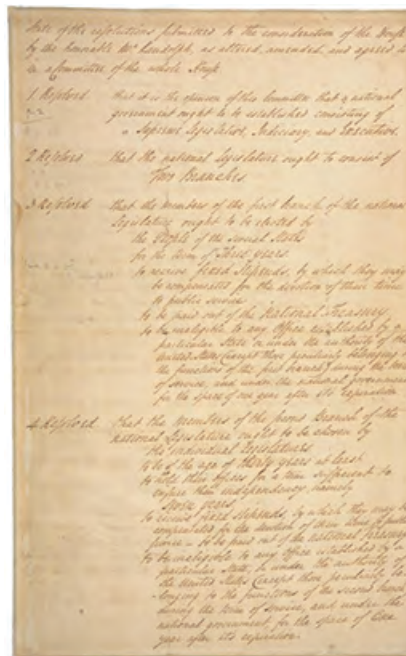 State of the resolutions submitted to the consideration of the House
by the honorable Mr. Randolph, as altered, amended, and agreed to
in a Committee of the whole House.
1 Resolved that it is the opinion of this Committee that a national
government ought to be established consisting of
a Supreme Legislative, Judiciary, and Executive.
2 Resolved that the national Legislature ought to consist of
Two Branches.
3 Resolved that the members of the first branch of the national
Legislature ought to be elected by
the People of the several States
for the term of Three years.
to receive fixed stipends, by which they may
be compensated for the devotion of their time
to public service
to be paid out of the National Treasury.
to be ineligible to any Office established by a
particular State or under the authority of the
United States (except those peculiarly belonging to
the functions of the first branch) during the term
of service, and under the national government
for the space of one year after its expiration.
4 Resolved that the members of the second Branch of the
national Legislature ought to be chosen by
the individual Legislatures.
to be of the age of thirty years at least.
to hold their offices for a term sufficient to
ensure their independency, namely
seven years.
to receive fixed stipends, by which they may be
compensated for the devotion of their time to public
service - to be paid out of the National Treasury
to be ineligible to any Office established by a
particular State, or under the authority of
the United States (except those peculiarly be-
longing to the functions of the second branch)
during the term of service, and under the
national government, for the space of One
year after its expiration.